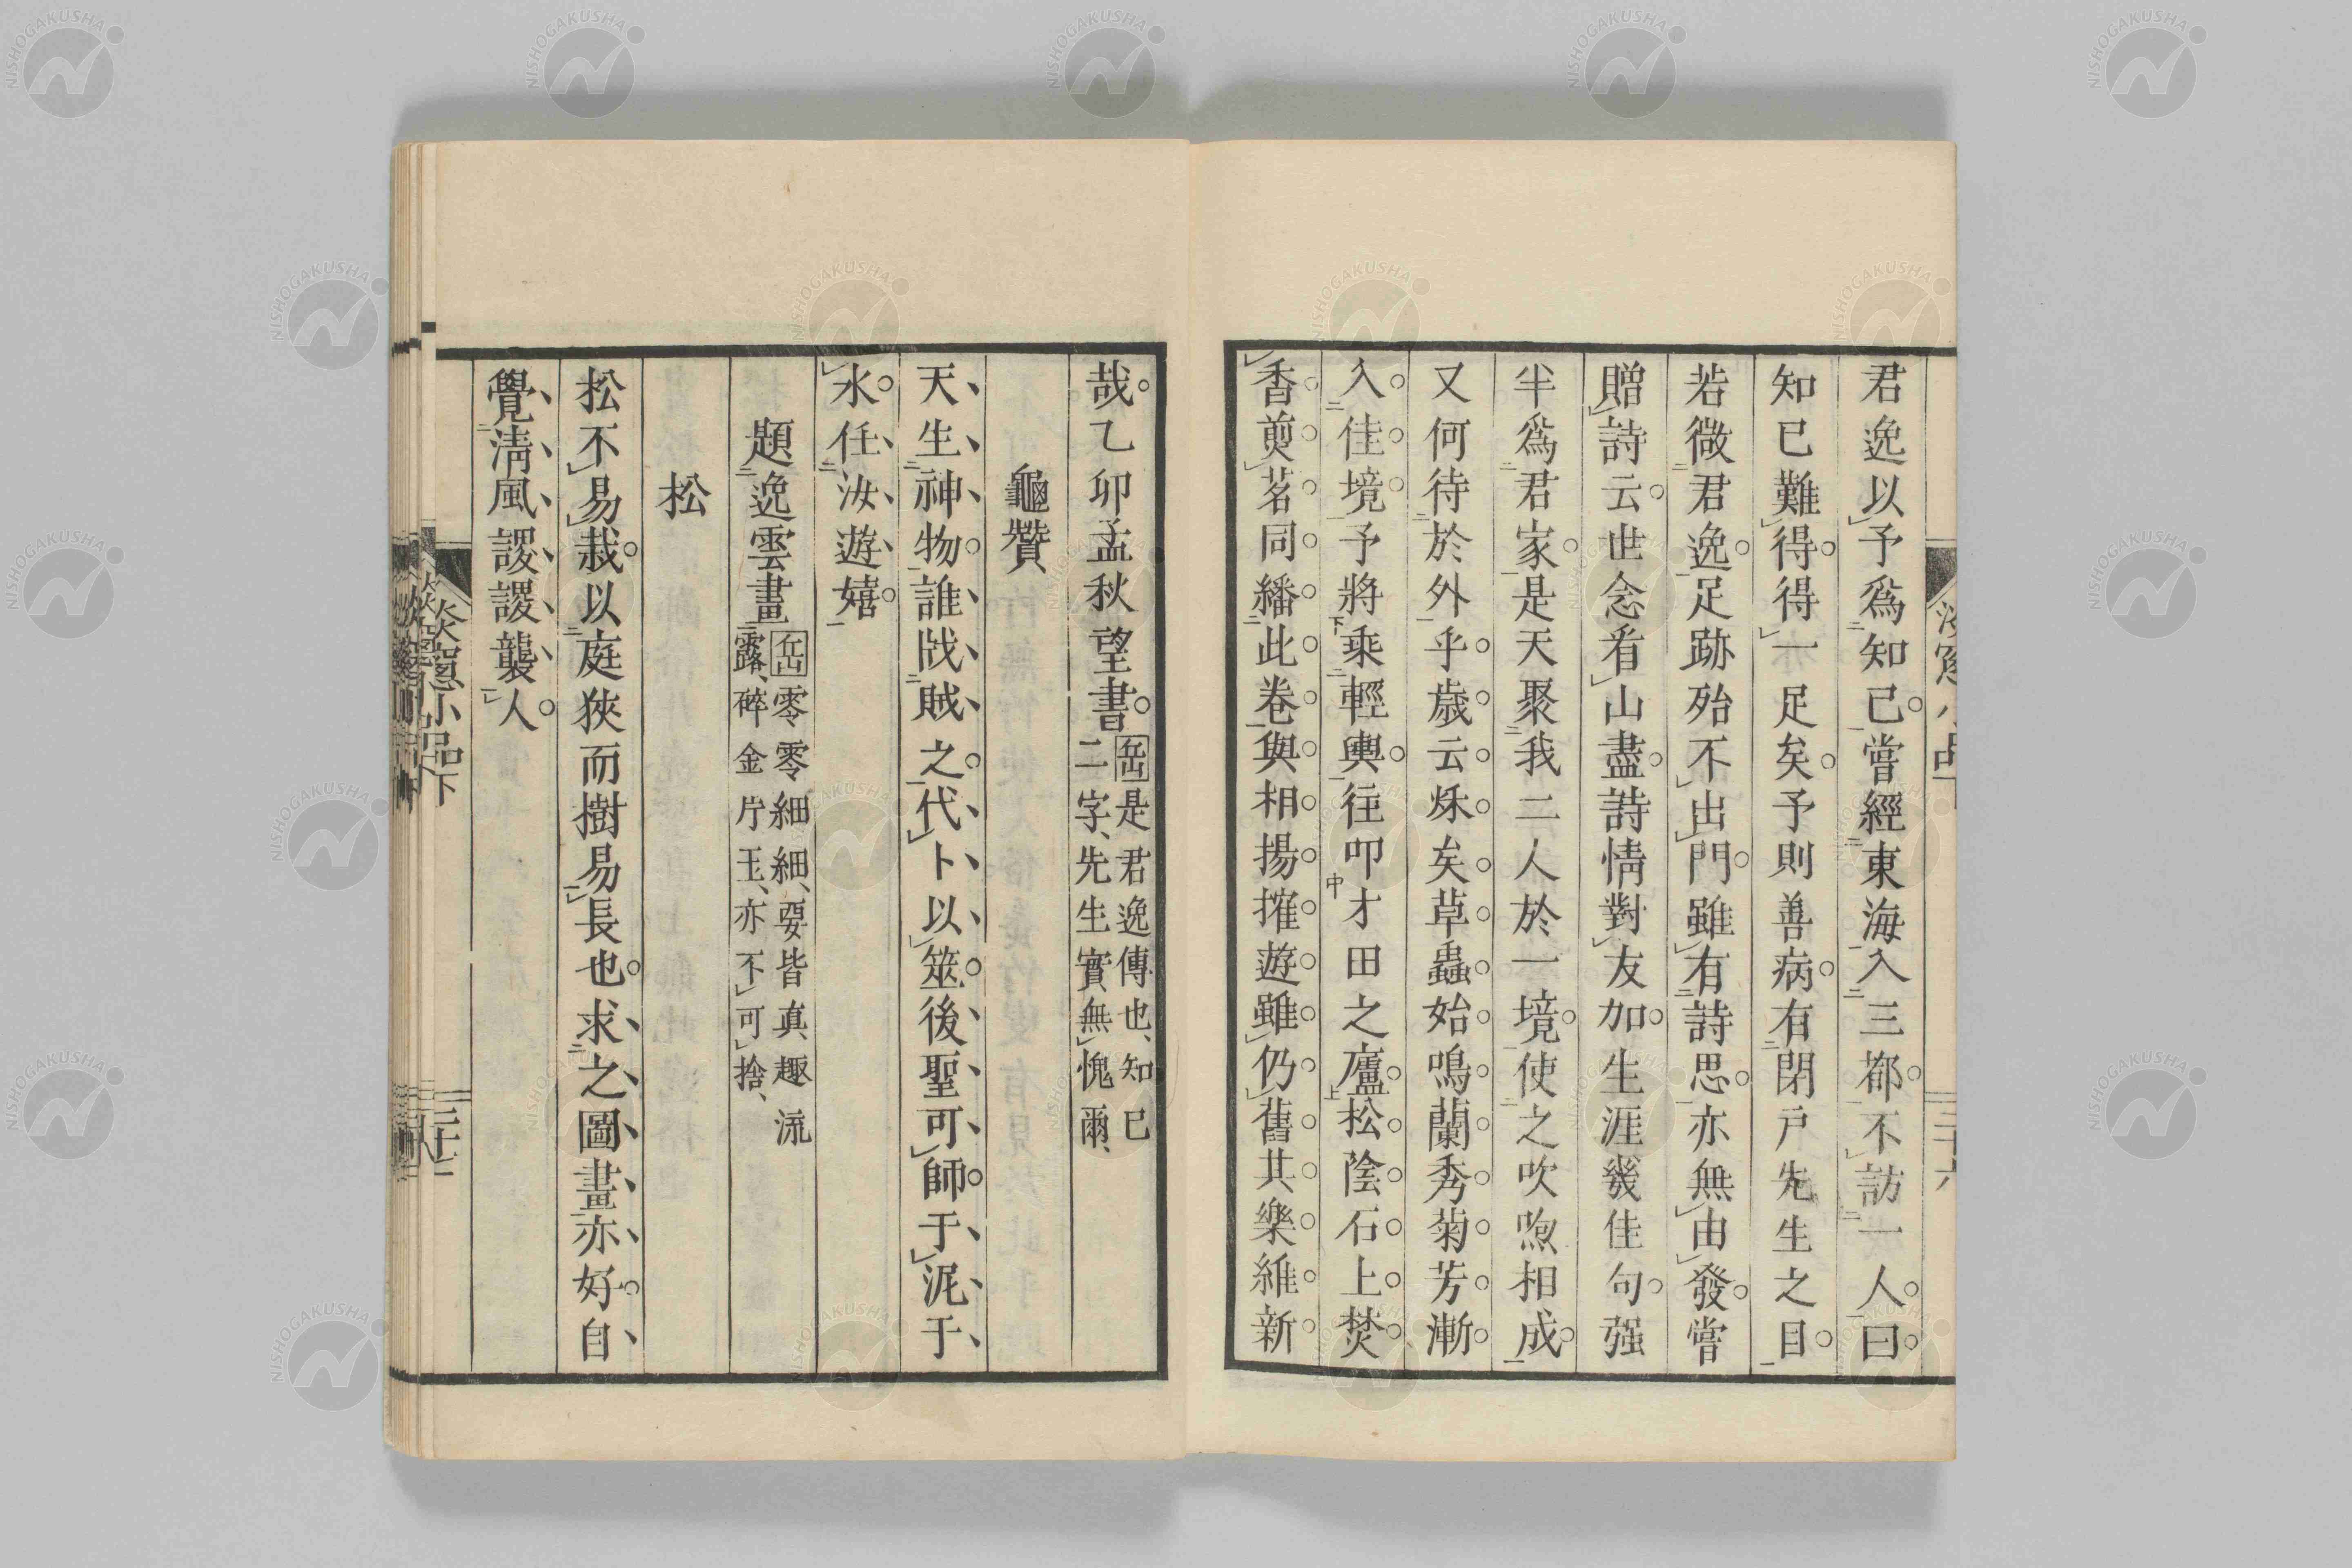 君逸以予爲知己嘗經東海入三都不訪一人曰
知己難得得一足矣予則善病有閉戶先生之目
若微君逸足跡殆不出門雖有詩思亦無由發嘗
贈詩云世念看山盡詩情對友加生涯幾佳句强
半爲君家是天聚我二人於一境使之吹喣相成
又何待於外乎歲云烁矣草蟲始鳴蘭秀菊芳漸
入佳境予將乘輕輿往叩才田之廬松陰石上焚
香煎茗同繙此卷與相揚搉遊雖仍舊其樂維新
哉乙卯孟秋望書 岳是君逸傳也、知已
二字、先生實、無愧爾、
龜贊
天生神物誰戕賊之代卜以筮後聖可師于泥于
水任汝遊嬉
題逸雲畫 岳零零細細、要皆眞、趣流
露、碎金片玉、亦不可捨、
松
松不易栽以庭狹而樹易長也求之圖畫亦好自
覺淸風謖謖襲人
小品下
NISHOGAKUSHA